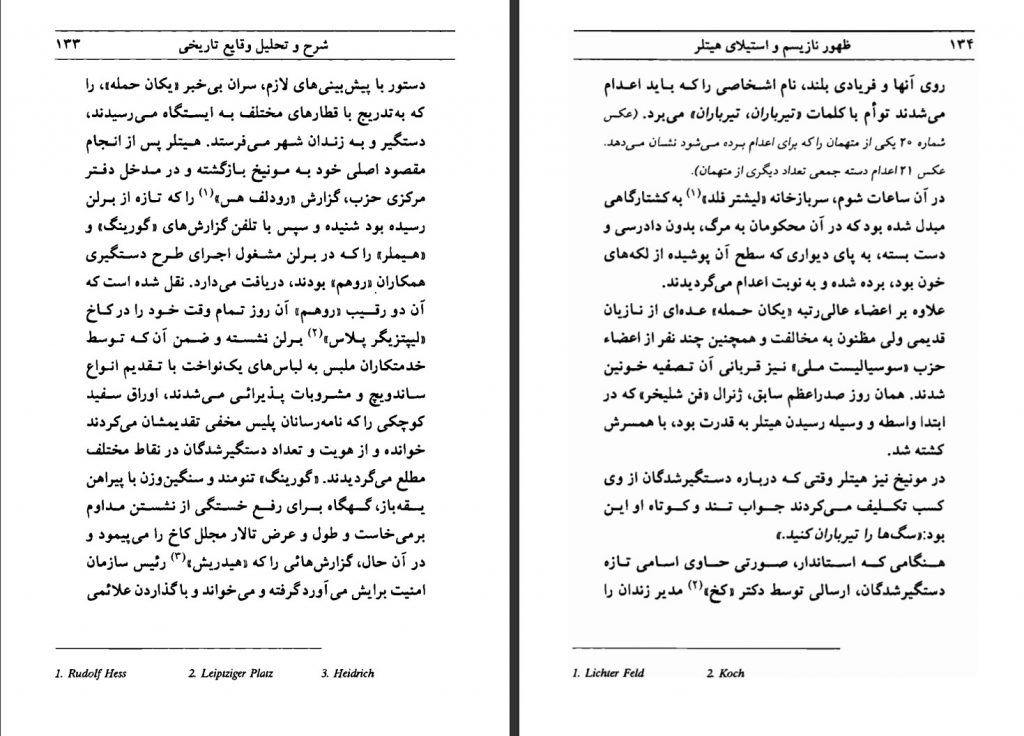 شرح و تحلیل وقایع تاریخی ۱۳۳
دستور با پیش‌بینی‌های لازم، سران بی‌خبر «یکان حمله»، را
که به‌تدریج با قطارهای مختلف به ایستگاه می‌رسیدند،
دستگیر و به زندان شهر می‌فرستد. هیتلر پس از انجام
مقصود اصلی خود به مونیخ بازگشته و در مدخل دفتر
مرکزی حزب، گزارش «رودلف هس»(۱) را که تازه از برلن
رسیده بود شنیده و سپس با تلفن گزارش‌های «گورینگ» و
«هیملر» را که در برلن مشغول اجرای طرح دستگیری
همکاران «روهم» بودند، دریافت می‌دارد. نقل شده است که
آن دو رقیب «روهم» آن روز تمام وقت خود را در کاخ
«لیپتزیگر پلاس»(۲) برلن نشسته و ضمن آن که توسط
خدمتکاران ملبس به لباس‌های یک‌نواخت با تقدیم انواع
ساندویچ و مشروبات پذیرائی می‌شدند، اوراق سفید
کوچکی را که نامه‌رسانان پلیس مخفی تقدیمشان می‌کردند
خوانده و از هویت و تعداد دستگیرشدگان در نقاط مختلف
مطلع می‌گردیدند. «گورینگ» تنومند و سنگین‌وزن با پیراهن
یقه‌باز، گهگاه برای رفع خستگی از نشستن مداوم
برمی‌خاست و طول و عرض تالار مجلل کاخ را می‌پیمود و
در آن حال، گزارش‌هائی را که «هیدریش»(۳) رئیس سازمان
امنیت برایش می‌آورد گرفته و می‌خواند و با گذاردن علائمی
1. Rudolf Hess 2. Leiptziger Platz 3. Heidrich
۱۳۴ ظهور نازیسم و استیلای هیتلر
روی آنها و فریادی بلند، نام اشخاصی را که باید اعدام
می‌شدند توأم با کلمات «تیرباران، تیرباران» می‌برد. (عکس
شماره ۲۰ یکی از متهمان را که برای اعدام برده می‌شود نشان می‌دهد.
عکس ۲۱ اعدام دسته جمعی تعداد دیگری از متهمان).
در آن ساعات شوم، سربازخانه «لیشتر فلد»(۱) به کشتارگاهی
مبدل شده بود که در آن محکومان به مرگ، بدون دادرسی و
دست بسته، به پای دیواری که سطح آن پوشیده از لکه‌های
خون بود، برده شده و به نوبت اعدام می‌گردیدند.
علاوه بر اعضاء عالی‌رتبه «یکان حمله» عده‌ای از نازیان
قدیمی ولی مظنون به مخالفت و همچنین چند نفر از اعضاء
حزب «سوسیالیست ملی» نیز قربانی آن تصفیه خونین
شدند. همان روز صدراعظم سابق، ژنرال «فن شلیخر» که در
ابتدا واسطه و وسیله رسیدن هیتلر به قدرت بود، با همسرش
کشته شد.
در مونیخ نیز هیتلر وقتی که درباره دستگیرشدگان از وی
کسب تکلیف می‌کردند جواب تند و کوتاه او این
بود:«سگ‌ها را تیرباران کنید.»
هنگامی که استاندار، صورتی حاوی اسامی تازه
دستگیرشدگان، ارسالی توسط دکتر «کخ»(۲) مدیر زندان را
1. Lichter Feld 2. Koch